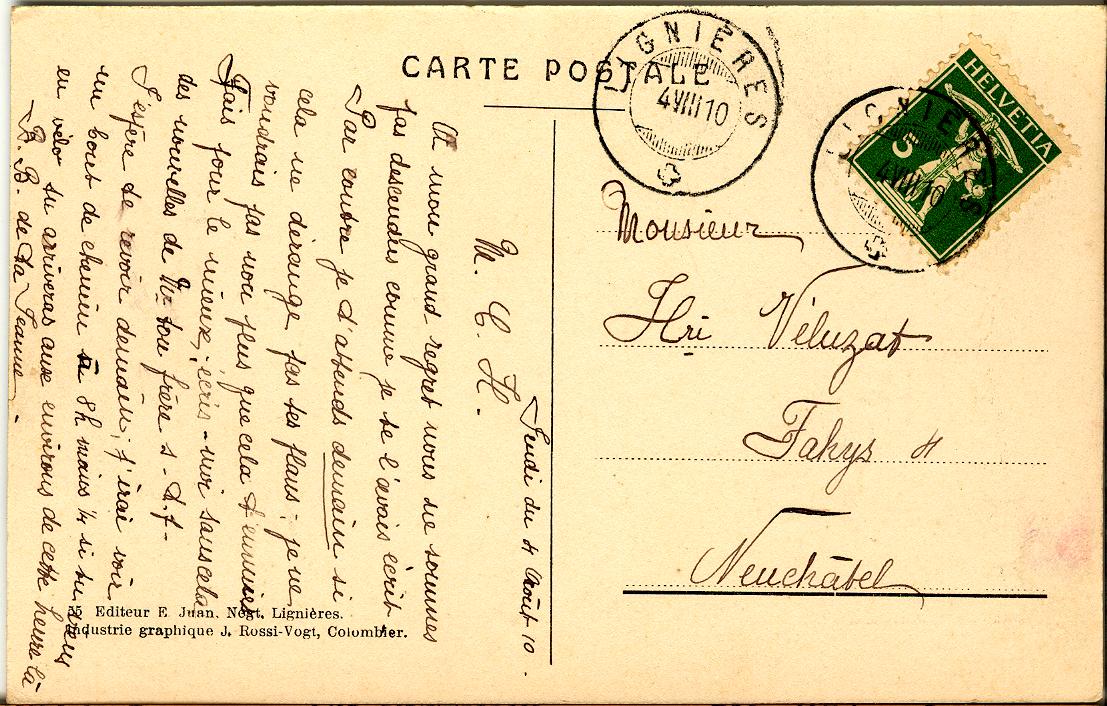 CARTE POSTALE
LIGNIÈRES
4 VIII 10
HELVETIA
5
LIGNIÈRES
4 VIII 10
Monsieur
Hri Véluzat
Fahys 4
Neuchâtel
Jeudi du 4 Août 10.
M. C. H.
A mon grand regret nous ne sommes
pas descendus comme je te l'avais écrit
Par contre je t'attends demain si
cela ne dérange pas tes plans; je ne
voudrais pas non plus que cela t'ennuie
Fais pour le mieux, écris-moi sans cela
des nouvelles de Mr ton frère s-t-f-
J'espère te revoir demain; j'irai voir
un bout de chemin à 8h moins ¼ si tu viens
en vélo tu arriveras aux environs de cette heure là
B. B. de ta Jeanne.
55 Editeur E. Juan. Négt. Lignières.
Industrie graphique J. Rossi-Vogt, Colombier.